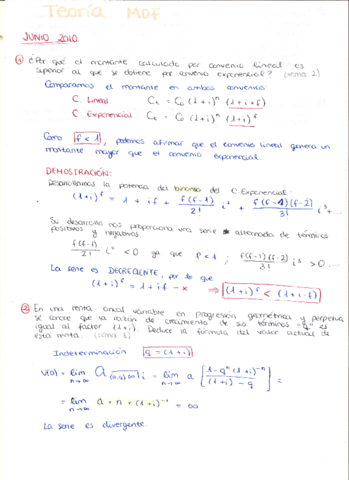 Teoría MOF
JUNIO 2010.
① ¿Por qué el montante calculado por convenio lineal es
superior al que se obtiene por convenio exponencial? (tema 2)
Comparamos el montante en ambos convenios:
C. Lineal Cₜ = C₀ (1+i)ⁿ (1+i·f)
C. Exponencial Cₜ = C₀ (1+i)ⁿ (1+i)ᶠ
Como f < 1, podemos afirmar que el convenio lineal genera un
montante mayor que el convenio exponencial.
DEMOSTRACIÓN:
Desarrollamos la potencia del binomio del C. Exponencial:
(1+i)ᶠ = 1 + if + f(f-1)/2! i² + f(f-1)(f-2)/3! i³ + ...
Su desarrollo nos proporciona una serie alternada de términos
positivos y negativos.
f(f-1)/2! i² < 0 ya que f < 1 ; f(f-1)(f-2)/3! i³ > 0 ...
La serie es DECRECIENTE, por lo que
(1+i)ᶠ = 1 + if - x ⇒ (1+i)ᶠ < (1+i·f)
② En una renta anual variable en progresión geométrica y perpetua
se conoce que la razón de crecimiento de sus términos "q" es
igual al factor (1+i). Deduce la fórmula del valor actual de
esta renta. (tema 3)
Indeterminación q = (1+i)
V(0) = lim n→∞ A (a,q) ∞ i = lim n→∞ a [1-qⁿ(1+i)⁻ⁿ / (1+i)-q] =
= lim n→∞ a · n · (1+i)⁻¹ = ∞
La serie es divergente.